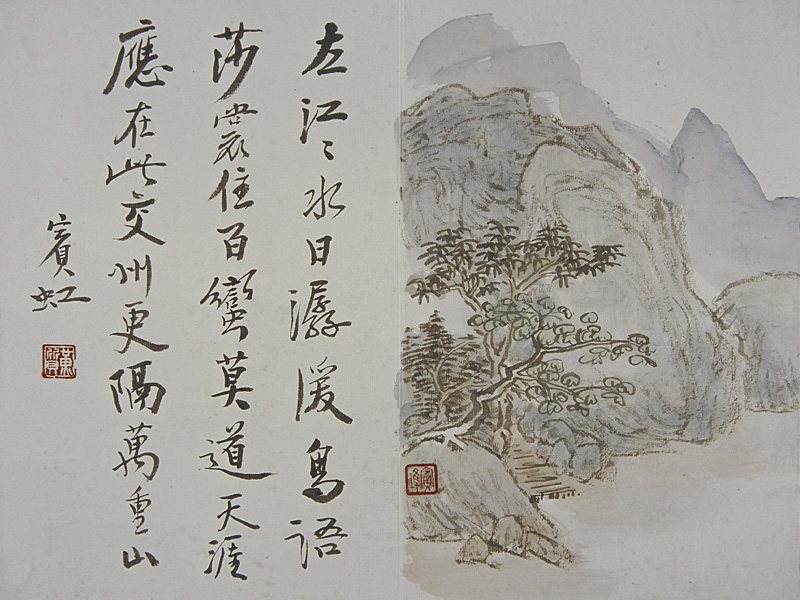 左江〻水日潺湲鳥語
莎裳住百蠻莫道天涯
應在此交州更隔萬重山
賓虹